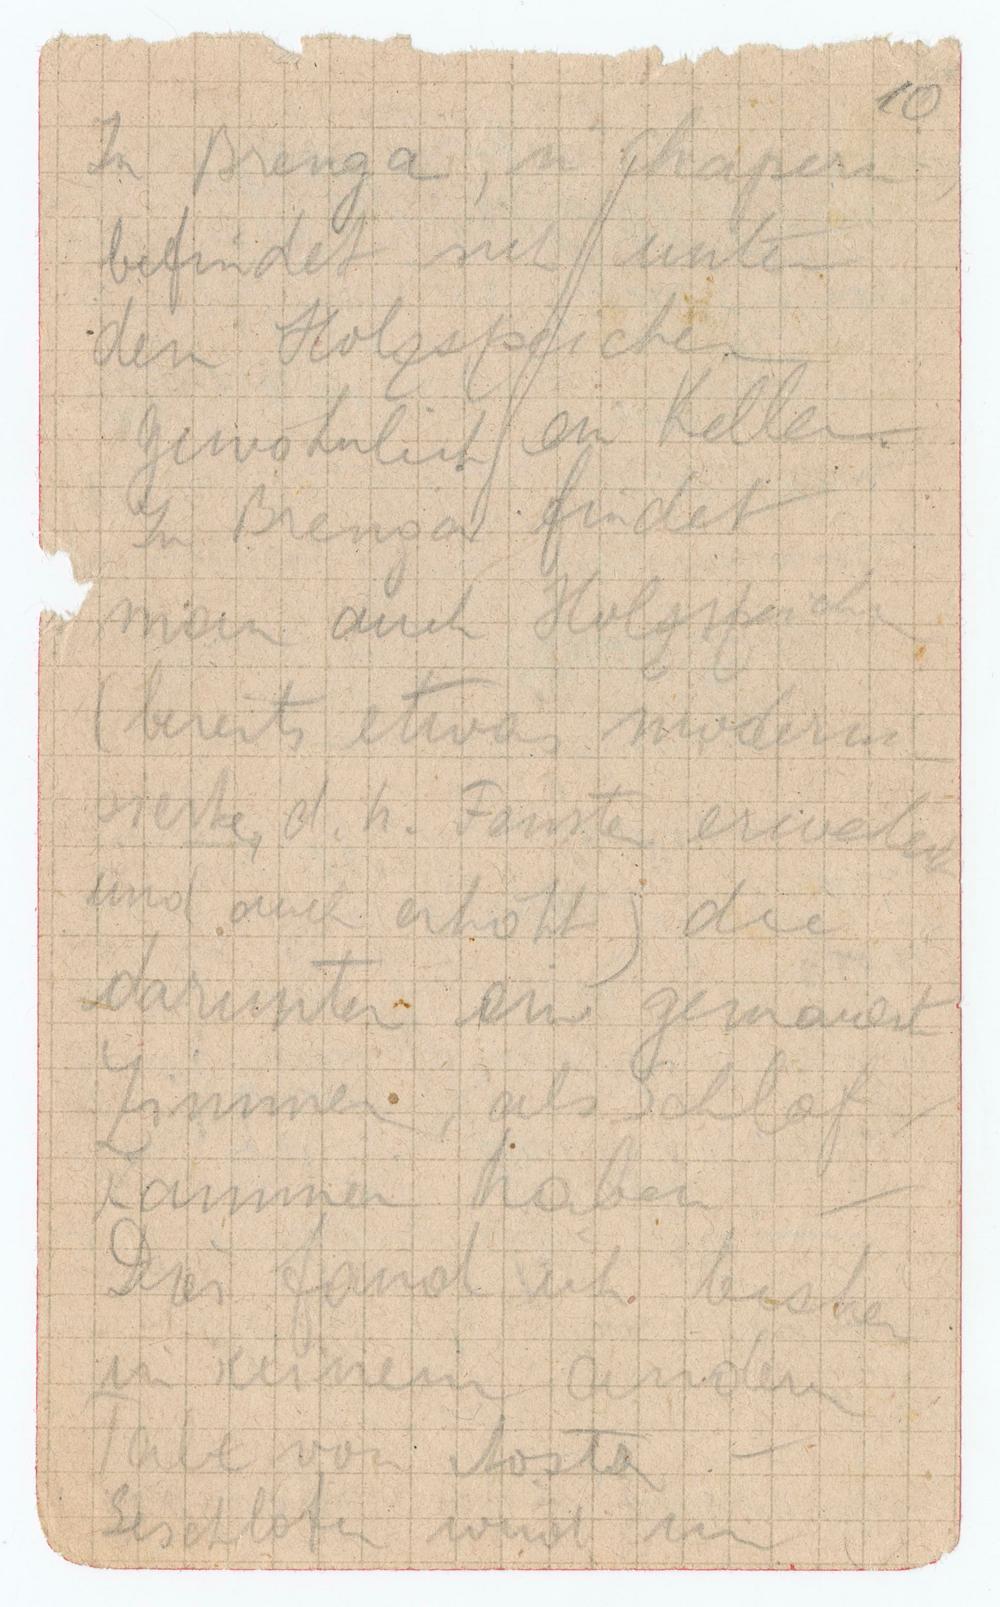 10
In Brenga, in Chapern-,
befindet sich unter
dem Holzspeicher
gewöhnlich ein Keller.
In Brenga findet
man auch Holzspeicher
(bereits etwas moderni-
sierte, d. h. Fenster erweitert
und auch erhöht) die
darunter ein gemauert
Zimmer, als Schlaf-
kammer haben –
Dies fand ich bisher
in keinem andern
Tale von Aosta –
Geschlafen wird im